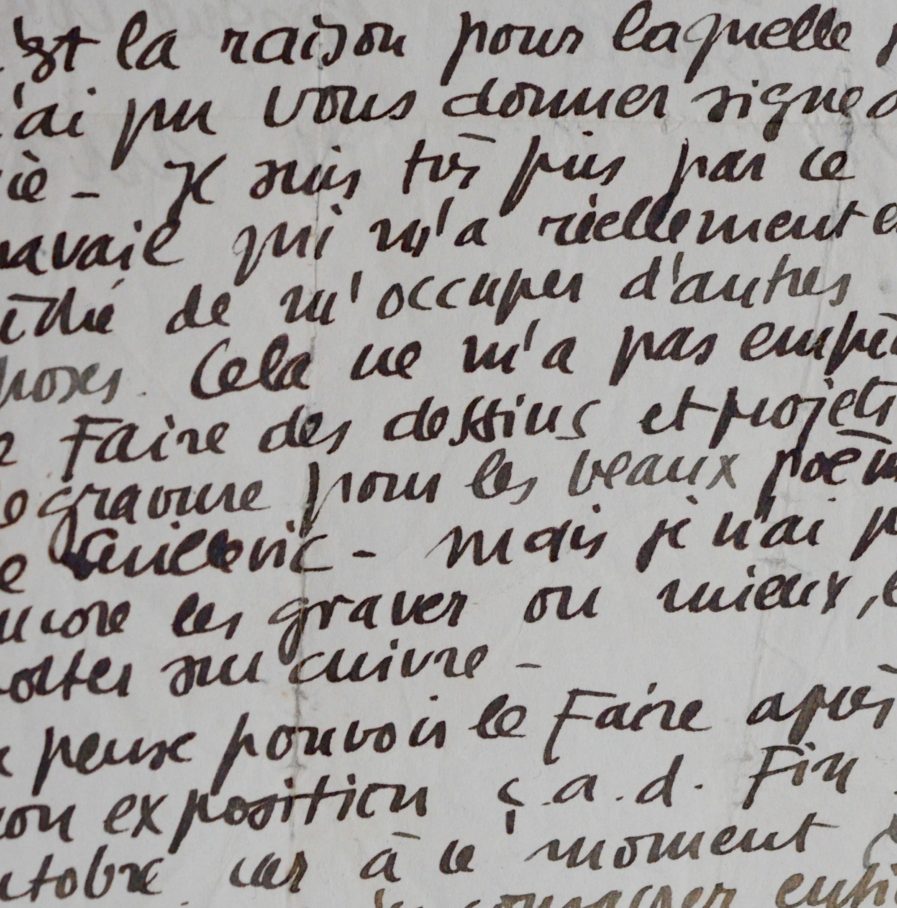 'st la raison pour laquelle j
'ai pu vous donner signe d
vie - Je suis très pris par ce
ravail qui m'a réellement e
de m'occuper d'autres
hoses. Cela ne m'a pas empê
e Faire des dessins et projets
e gravure pour les beaux poèm
e Guillevic - Mais je n'ai p
ncore les graver ou mieux, l
sur cuivre -
e pense pouvoir le Faire après
on exposition c.a.d. Fin
ctobre car à ce moment